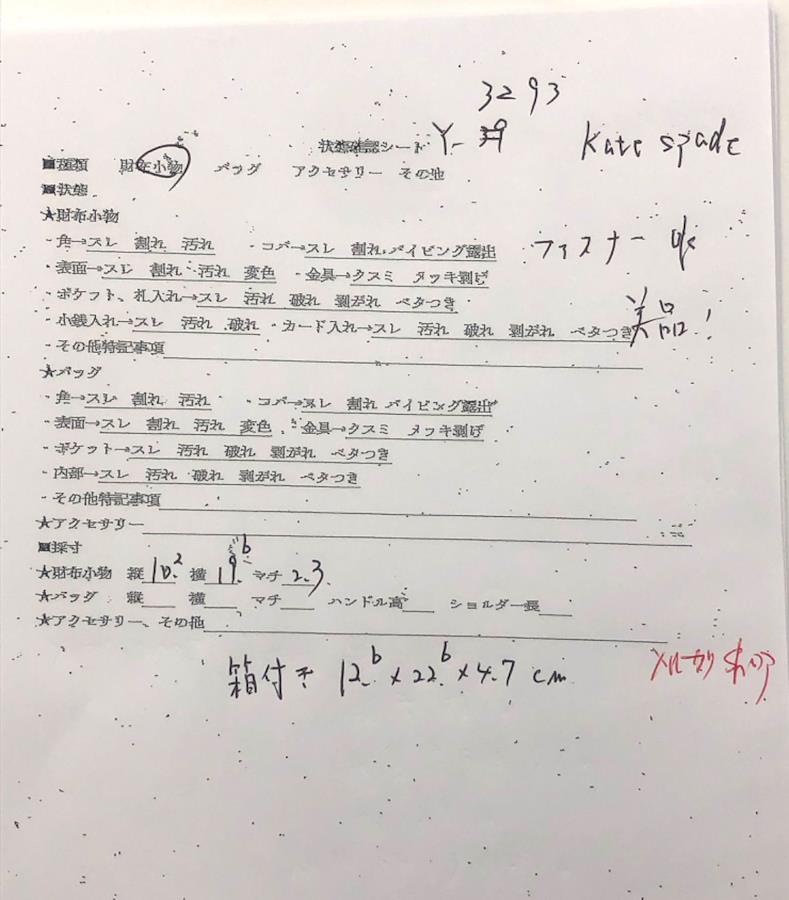 3293
状態確認シート Y-
Kate spade
■種類 財布小物 バッグ アクセサリー その他
■状態
★財布小物
・角→スレ 割れ 汚れ ・コバ→スレ 割れ パイピング露出
ファスナー ok
・表面→スレ 割れ 汚れ 変色 ・金具→クスミ メッキ剥げ
・ポケット、札入れ→スレ 汚れ 破れ 剥がれ ベタつき
美品!
・小銭入れ→スレ 汚れ 破れ ・カード入れ→スレ 汚れ 破れ 剥がれ ベタつき
・その他特記事項
★バッグ
・角→スレ 割れ 汚れ ・コバ→スレ 割れ パイピング露出
・表面→スレ 割れ 汚れ 変色 ・金具→クスミ メッキ剥げ
・ポケット→スレ 汚れ 破れ 剥がれ ベタつき
・内部→スレ 汚れ 破れ 剥がれ ベタつき
・その他特記事項
★アクセサリー
■採寸
★財布小物 縦 10.2 横 19. マチ 2.3
★バッグ 縦 横 マチ ハンドル高 ショルダー長
★アクセサリー、その他
箱付き 12.6 x 22.6 x 4.7 cm